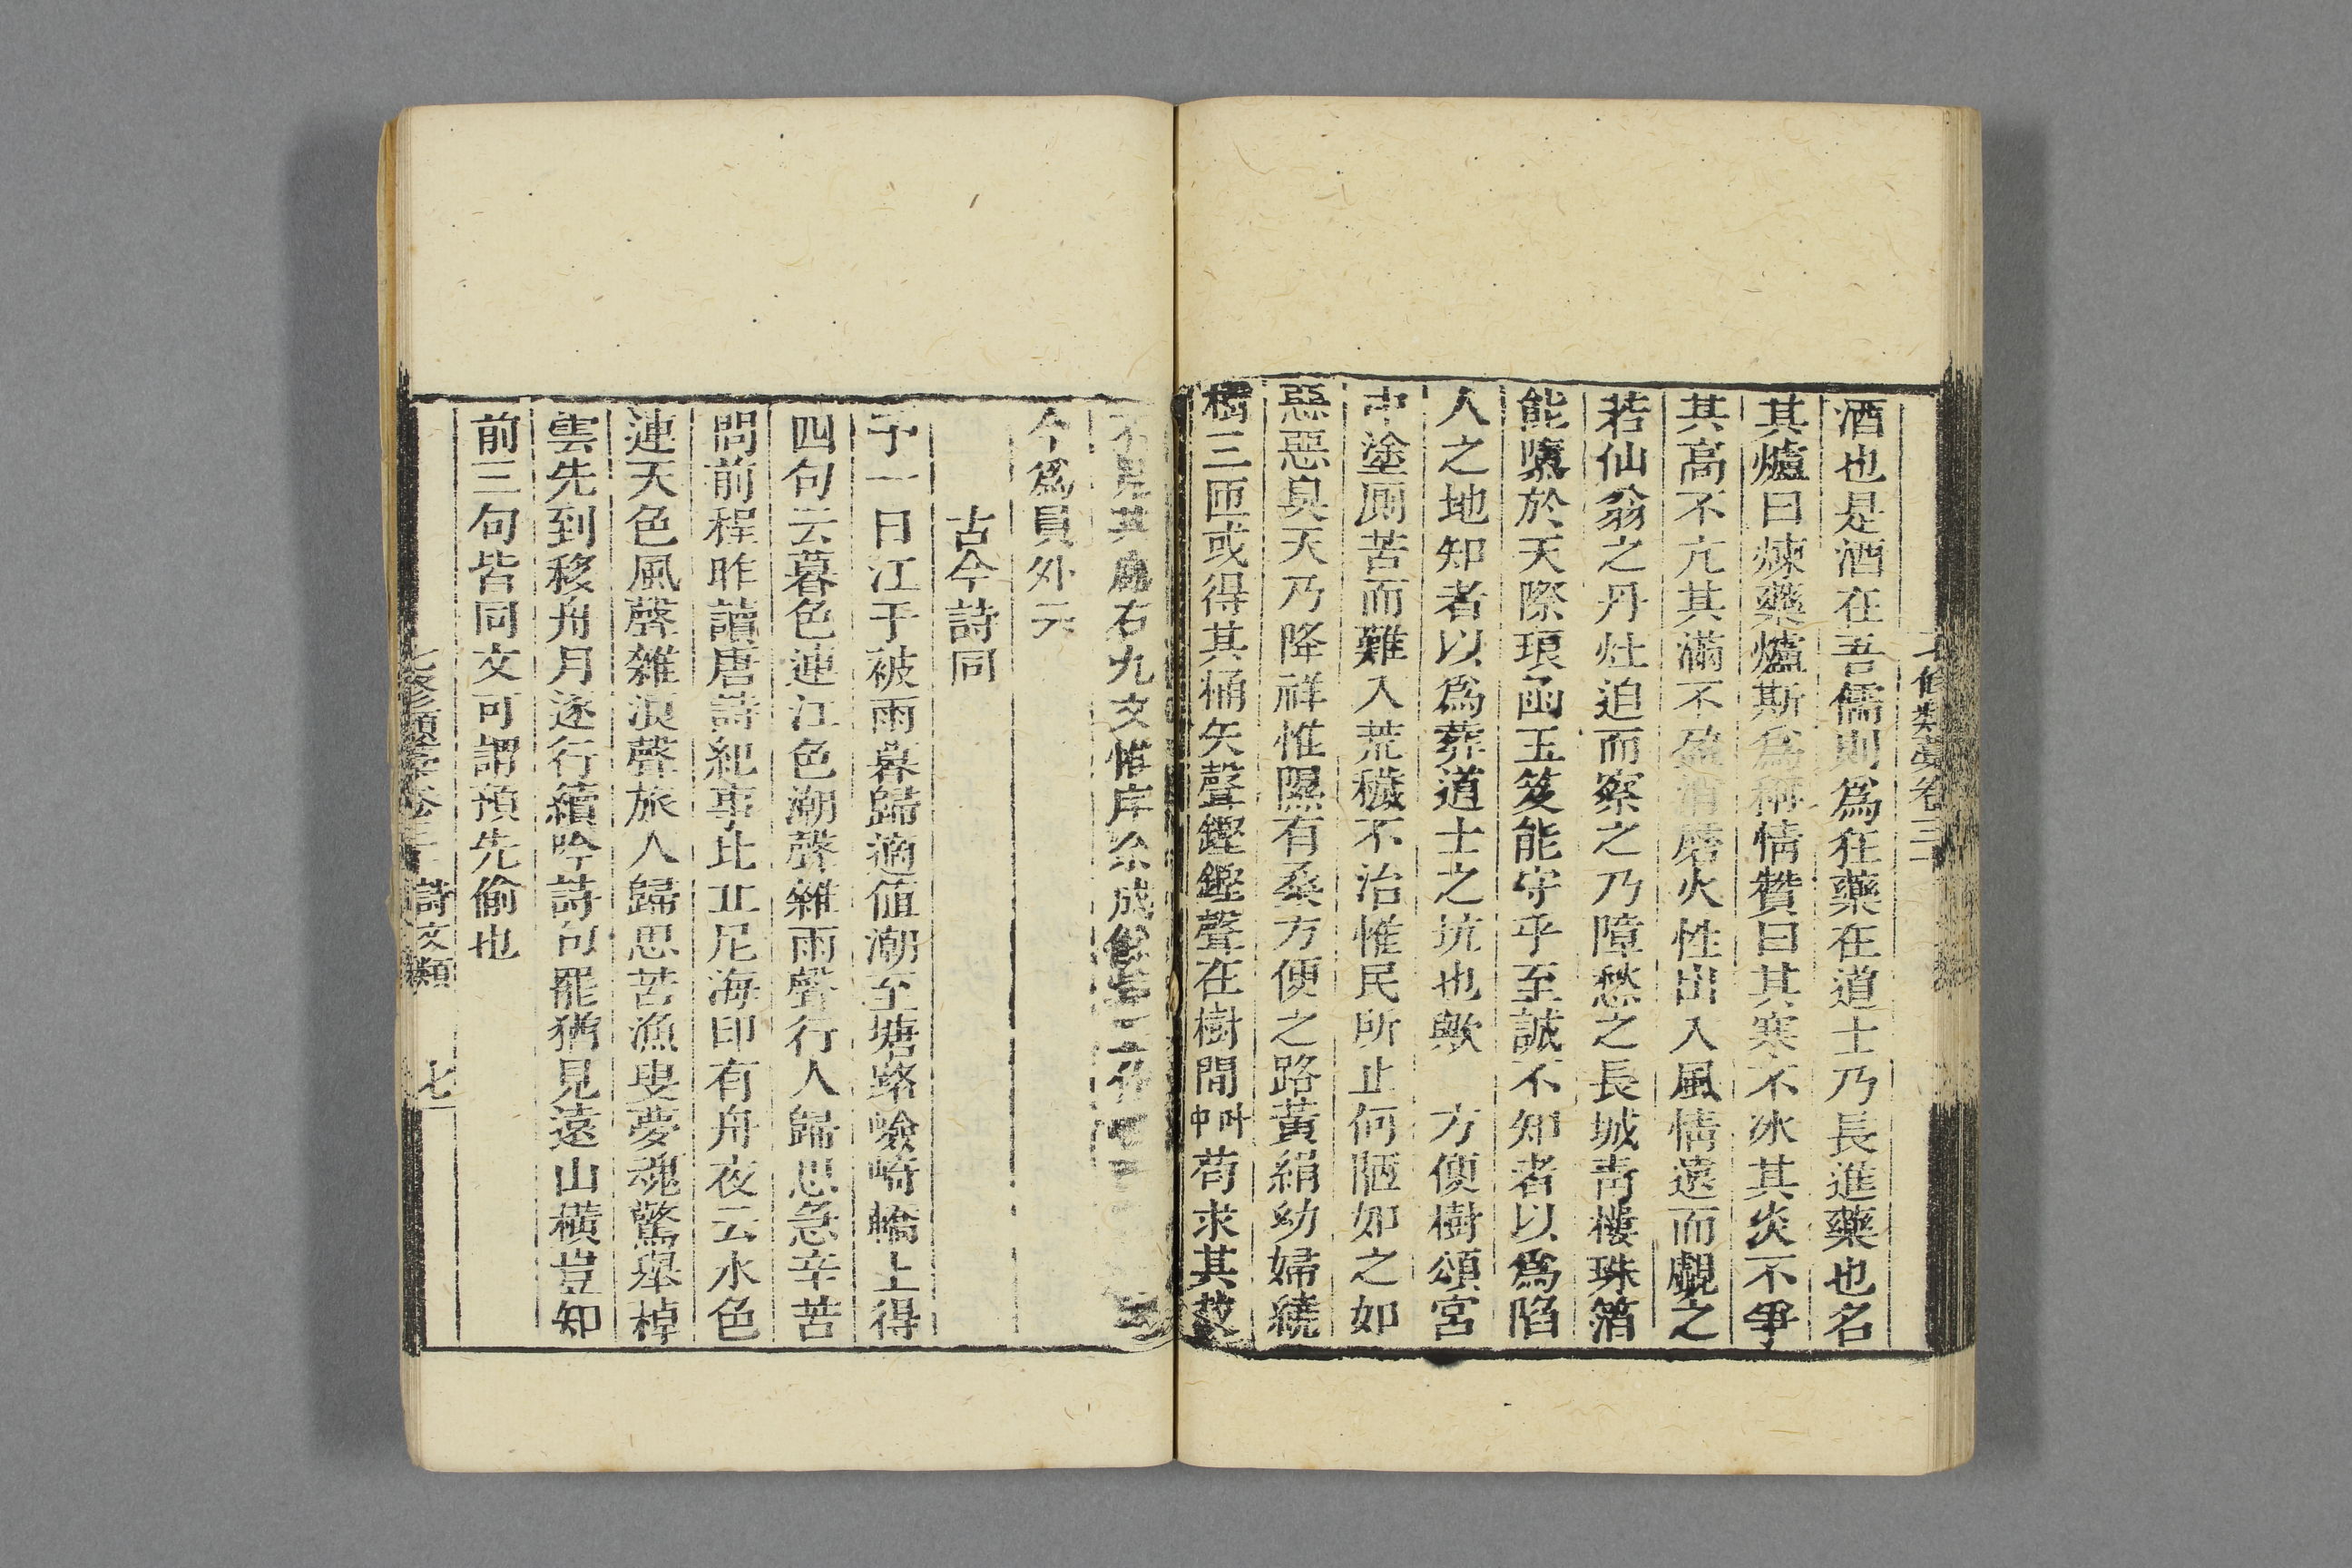 酒也是酒在吾儒則爲狂藥在道士乃長進藥也名
其爐曰煉藥爐斯爲稱情贊曰其寒不冰其炎不爭
其高不亢其滿不盈消磨火性出入風情遠而覷之
若仙翁之丹灶迫而察之乃障愁之長城靑樓珠箔
能墮於天際琅函玉笈能守乎至誠不知者以爲陷
人之地知者以爲葬道士之坑也歟　方便樹頌宮
中塗厠苦而難入荒穢不治惟民所止何陋如之如
惡惡臭天乃降祥惟隰有桑方便之路黃絹幼婦繞
樹三匝或得其桶矢聲鏗鏗聲在樹間
苟求其故
不見其處右九文惟序公成
今爲員外云
古今詩同
予一日江于被雨暮歸適値潮至塘路嶮崎轎上得
四句云暮色連江色潮聲雜雨聲行人歸思急辛苦
問前程昨讀唐詩紀事北丘尼海印有舟夜云水色
連天色風聲雜浪聲旅人歸思苦漁叟夢魂驚舉棹
雲先到移舟月逐行續吟詩句罷猶見遠山橫豈知
前三句皆同文可謂預先偷也
七修類藁卷三
詩文類
七